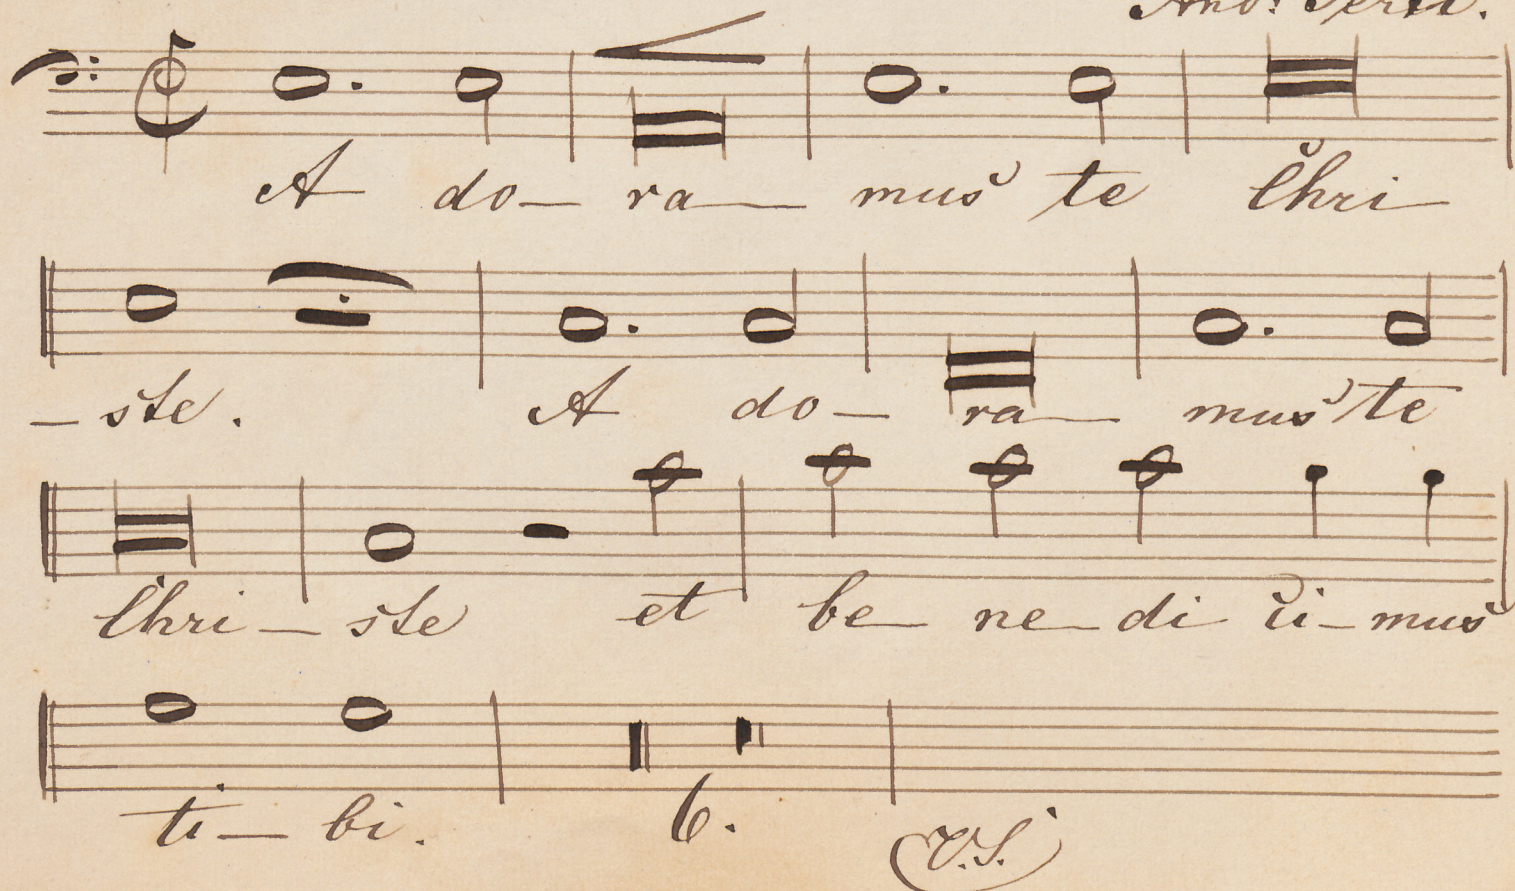 A do— ra— mus te Chri—
— ste. A do— ra— mus te
Chri— ste et be— ne— di ci— mus
ti— bi. 6.
V.S.